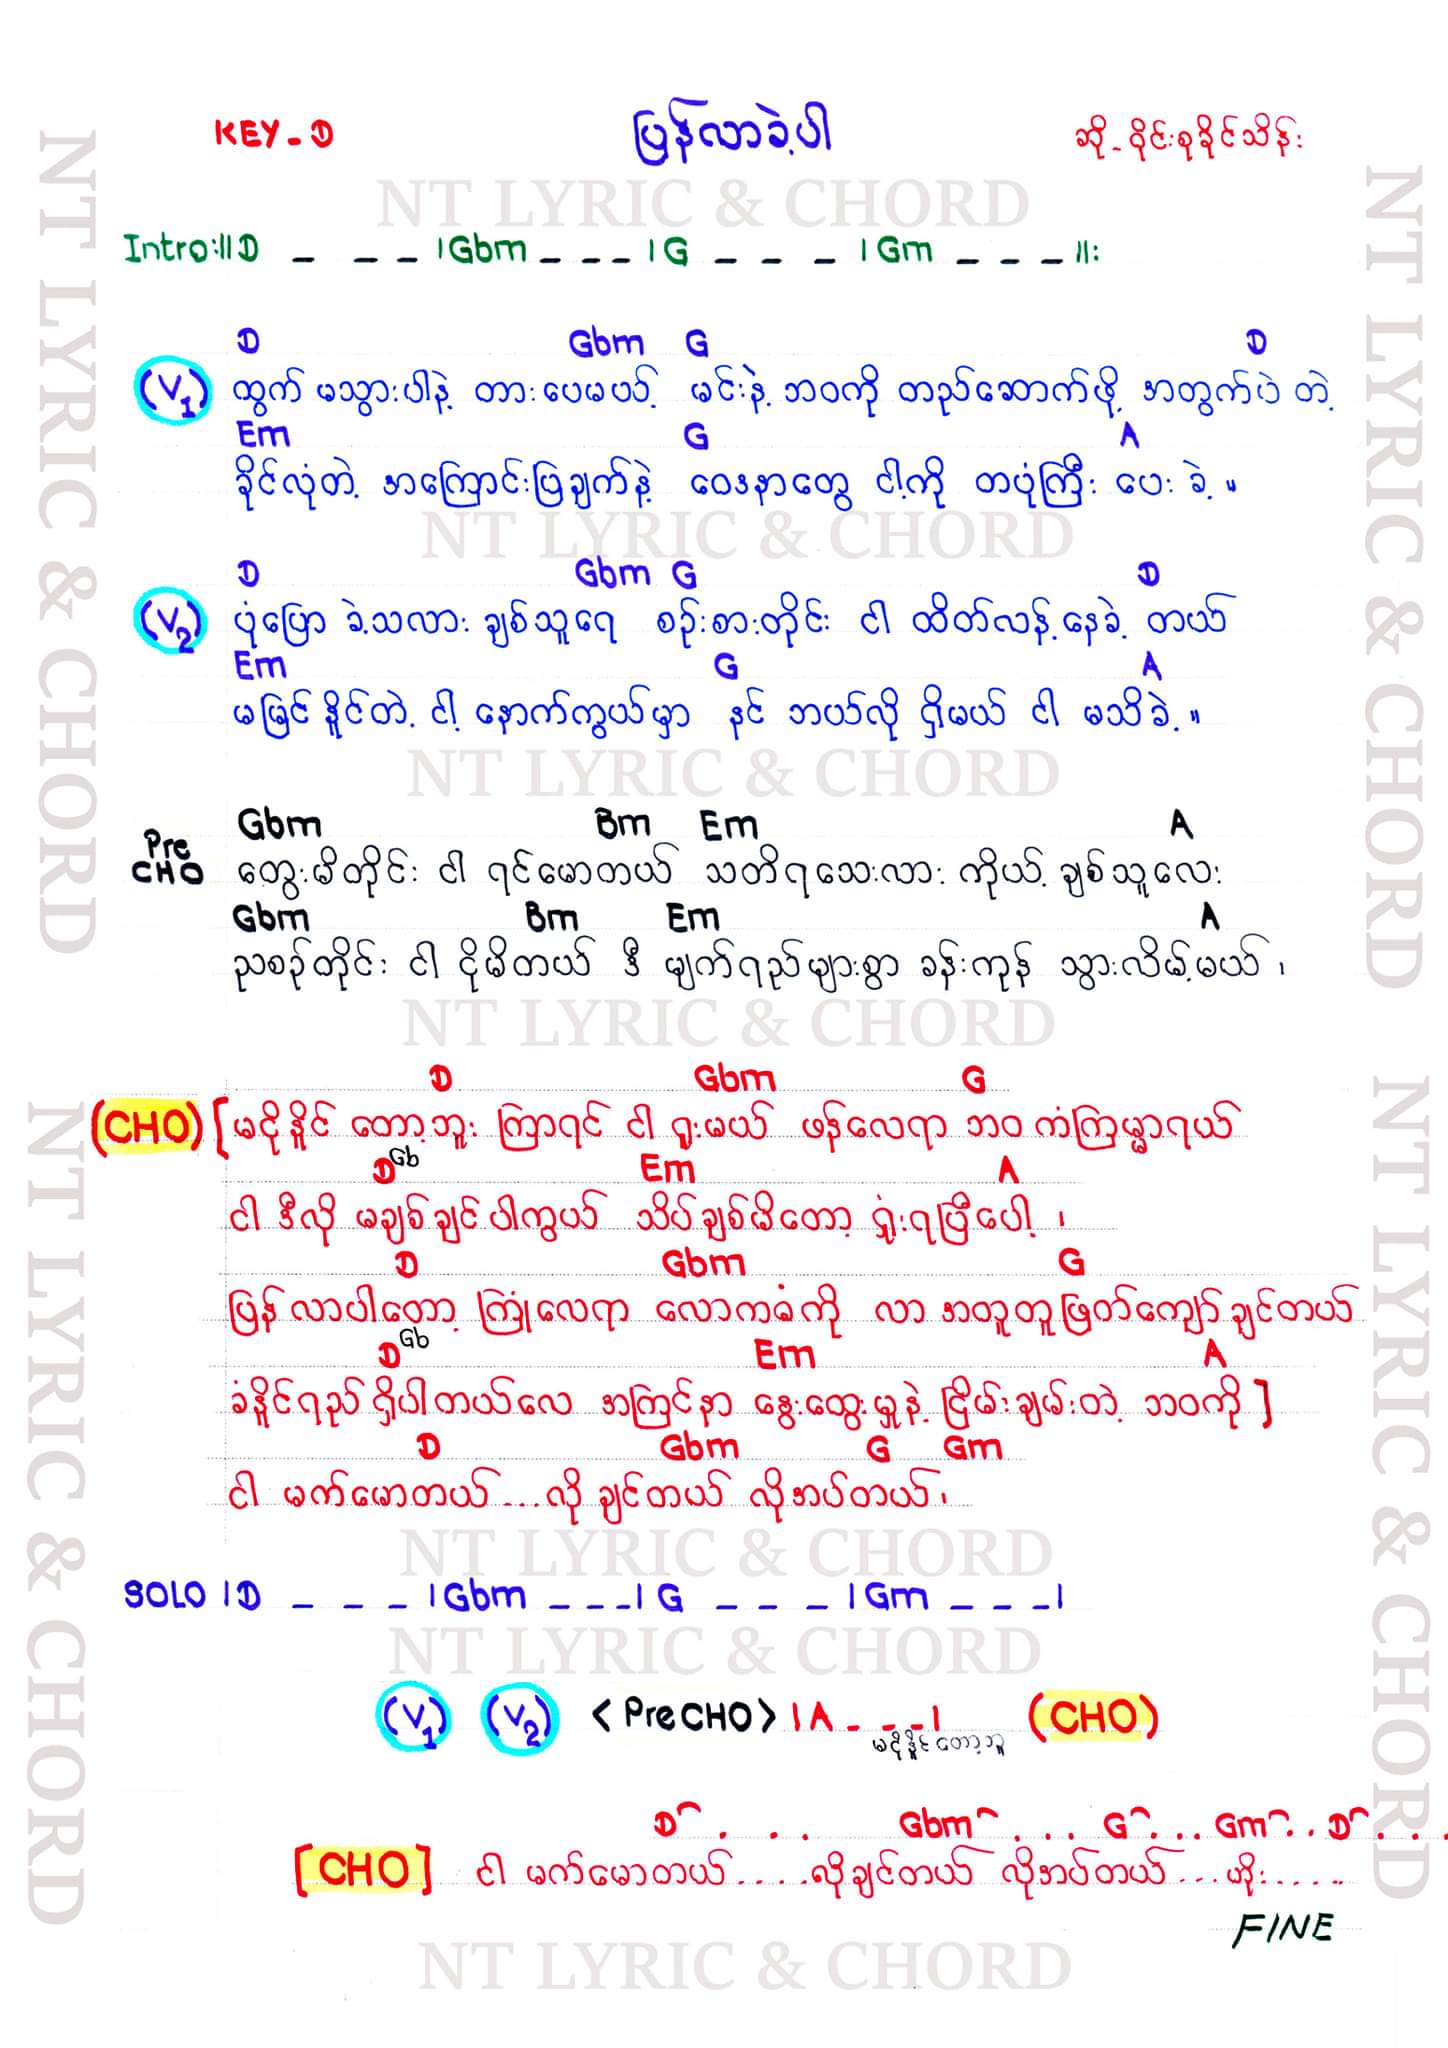 KEY - D
ပြန်လာခဲ့ပါ
ဆို - ဝိုင်းစုခိုင်သိန်း
NT LYRIC & CHORD
Intro:|| D _ _ _ | Gbm _ _ _ | G _ _ _ | Gm _ _ _ ||:
D Gbm G D
(V1) ထွက် မသွားပါနဲ့ တားပေမယ့် မင်းနဲ့ ဘဝကို တည်ဆောက်ဖို့ အတွက်ပဲ တဲ့
Em G A
ခိုင်လုံတဲ့ အကြောင်းပြချက်နဲ့ ဝေဒနာတွေ ငါ့ကို တပုံကြီး ပေး ခဲ့ ။
NT LYRIC & CHORD
D Gbm G D
(V2) ပုံပြော ခဲ့သလား ချစ်သူရေ စဉ်းစားတိုင်း ငါ ထိတ်လန့်နေခဲ့ တယ်
Em G A
မမြင် နိူင်တဲ့ ငါ့ နောက်ကွယ်မှာ နင် ဘယ်လို ရှိမယ် ငါ မသိခဲ့ ။
NT LYRIC & CHORD
Gbm Bm Em A
Pre CHO တွေးမိတိုင်း ငါ ရင်မောတယ် သတိရသေးလား ကိုယ့် ချစ်သူလေး
Gbm Bm Em A
ညစဉ်တိုင်း ငါ ငိုမိတယ် ဒီ မျက်ရည်များစွာ ခန်းကုန် သွားလိမ့်မယ် ၊
NT LYRIC & CHORD
D Gbm G
(CHO) [ မငိုနိူင် တော့ဘူး ကြာရင် ငါ ရူးမယ် ဖန်လေရာ ဘဝ ကံကြမ္မာရယ်
D Gb Em A
ငါ ဒီလို မချစ်ချင်ပါကွယ် သိပ်ချစ်မိတော့ ရှုံးရပြီပေါ့ ၊
D Gbm G
ပြန်လာပါတော့ ကြုံလေရာ လောကဓံကို လာ အတူတူဖြတ်ကျော် ချင်တယ်
D Gb Em A
ခံနိူင်ရည် ရှိပါတယ်လေ အကြင်နာ နွေးထွေးမှုနဲ့ ငြိမ်းချမ်းတဲ့ ဘဝကို ]
D Gbm G Gm
ငါ မက်မောတယ် ... လို ချင်တယ် လိုအပ်တယ် ၊
NT LYRIC & CHORD
SOLO | D _ _ _ | Gbm _ _ _ | G _ _ _ | Gm _ _ _ |
NT LYRIC & CHORD
(V1) (V2) < Pre CHO > | A _ _ _ | (CHO)
မငိုနိူင်တော့ဘူ
D . . . Gbm . . . G . . . Gm . . D . . .
[CHO] ငါ မက်မောတယ် ..... လိုချင်တယ် လိုအပ်တယ် ... ဟိုး .....
FINE
NT LYRIC & CHORD
NT LYRIC & CHORD
NT LYRIC & CHORD
NT LYRIC & CHORD
NT LYRIC & CHORD